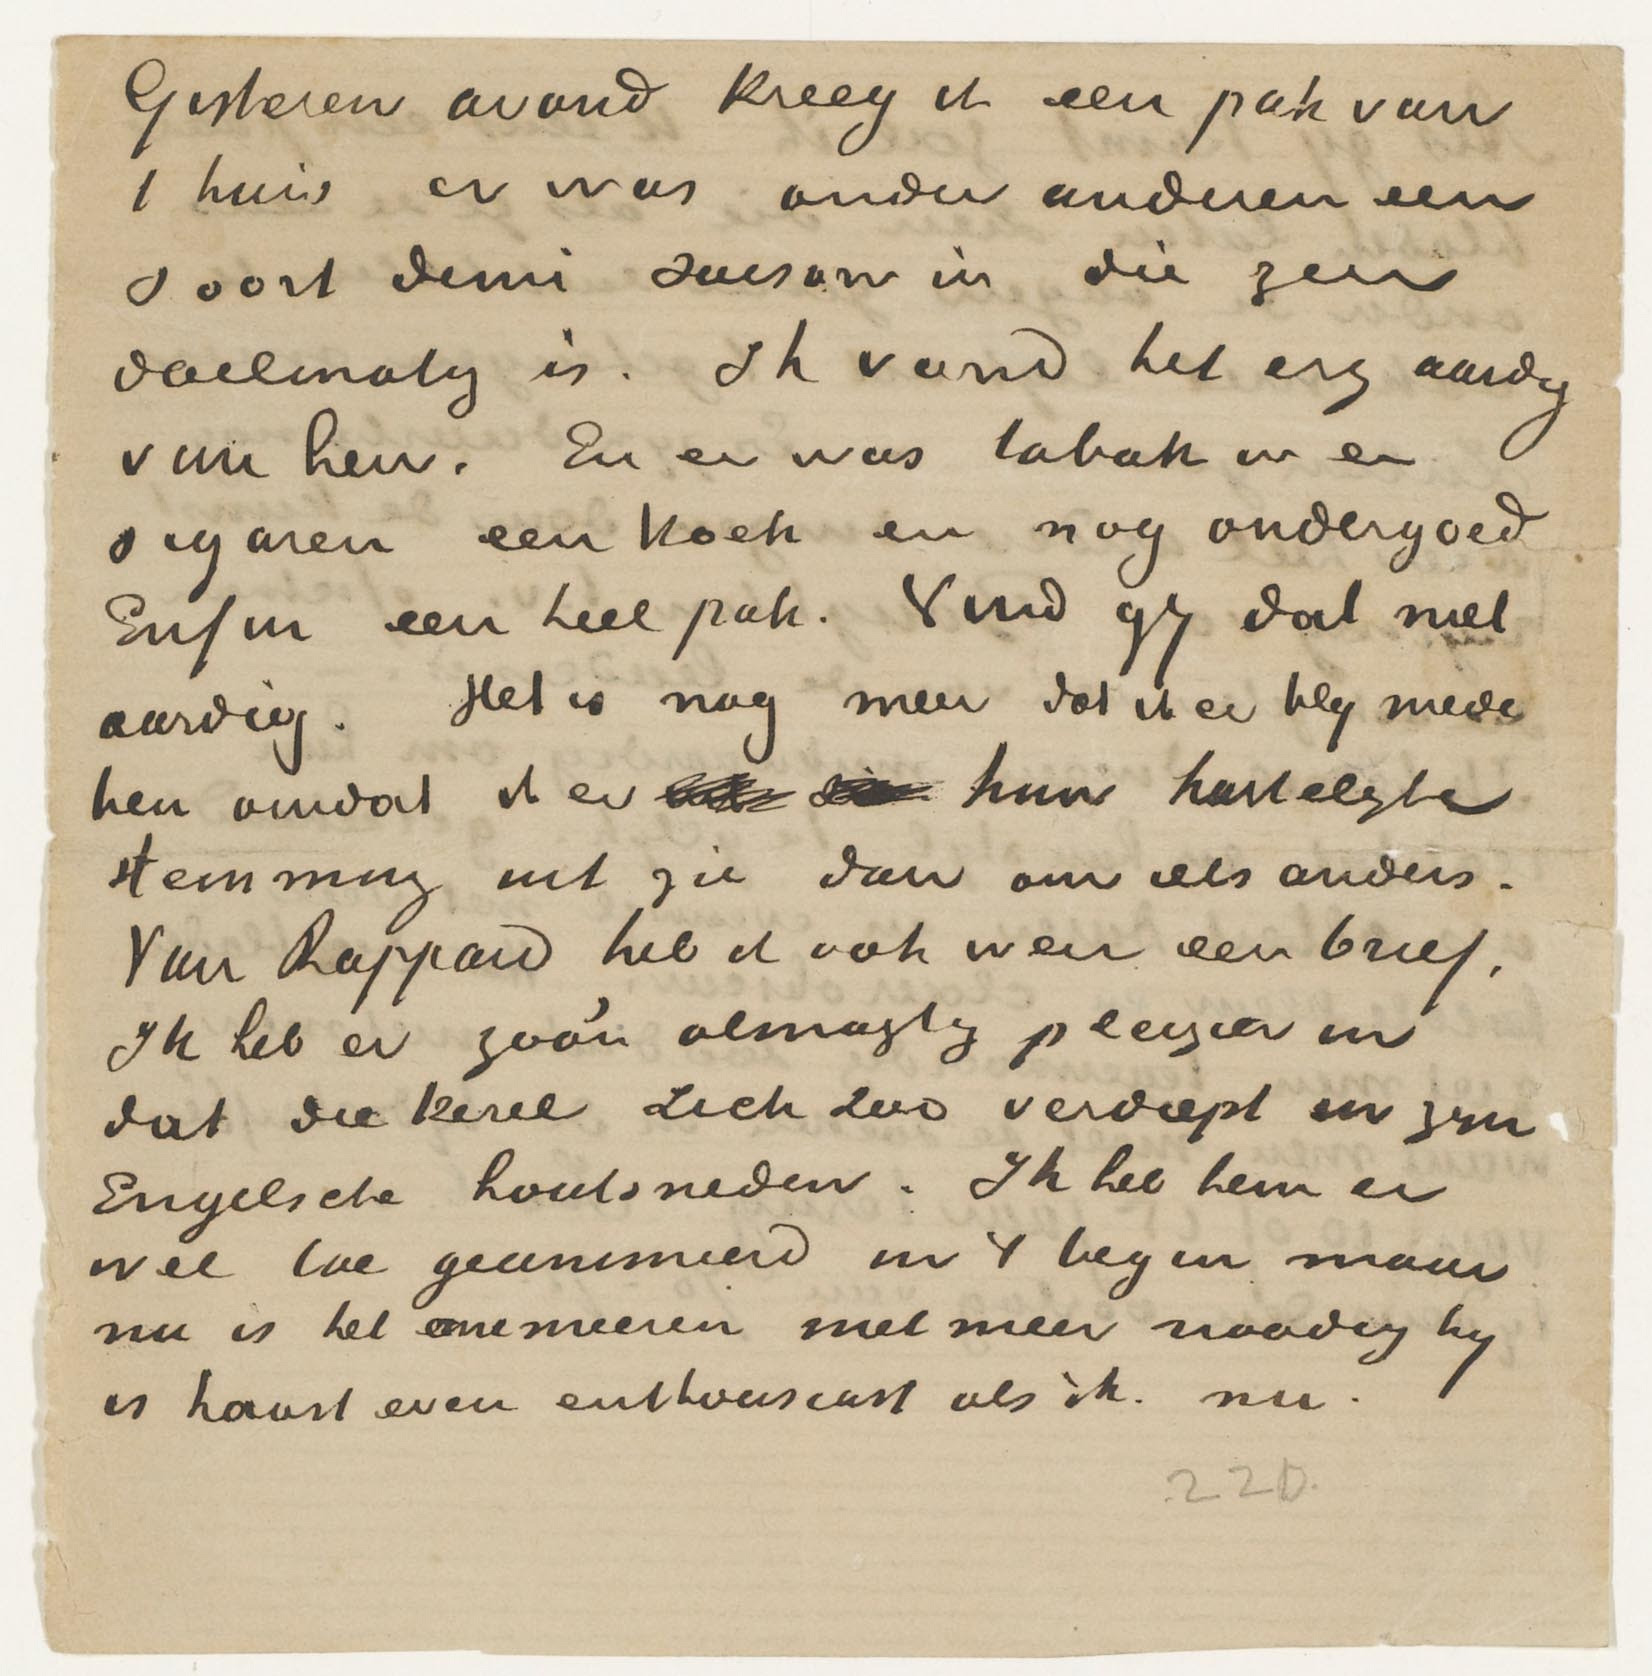 Gisteren avond kreeg ik een pak van
t huis er was onder anderen een
soort demi saison in die zeer
doelmatig is. Ik vond het erg aardig
van hen. En er was tabak in en
sigaren een koek en nog ondergoed
Enfin een heel pak. Vind gij dat niet
aardig. Het is nog meer dat ik er blij mede
ben omdat ik er hun hartelijke
stemming uit zie dan om iets anders.
Van Rappard heb ik ook weer een brief,
Ik heb er zoo'n almagtig pleizier in
dat die kerel zich zoo verdiept in zijn
Engelsche houtsneden. Ik heb hem er
wel toe geanimeerd in 't begin maar
nu is het animeeren niet meer noodig hij
is haast even enthousiast als ik. nu.
220.